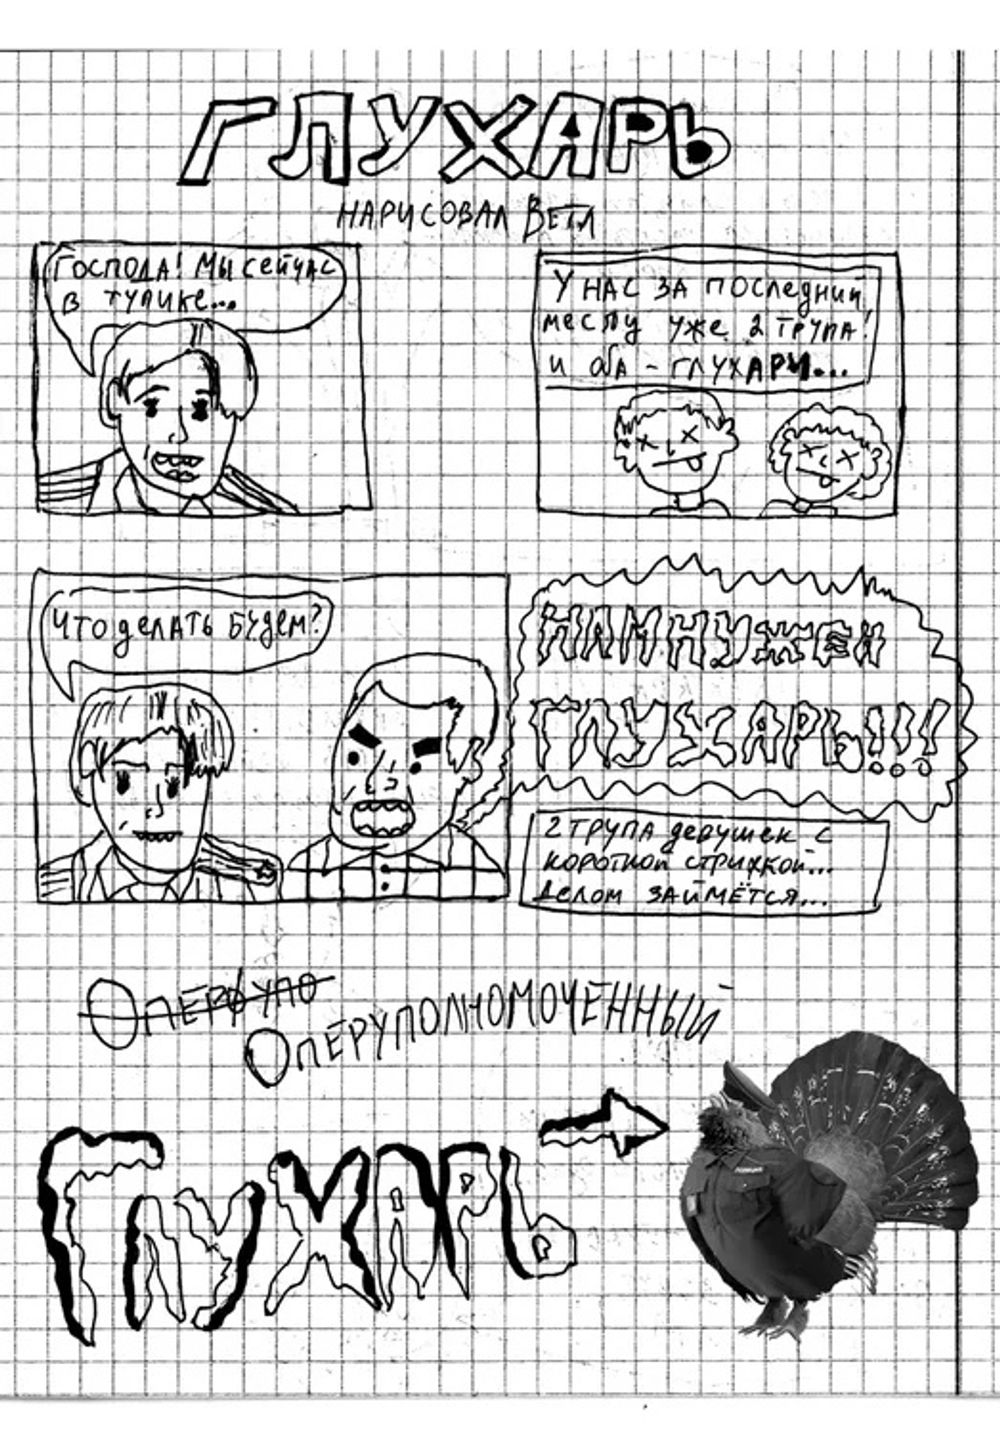 ГЛУХАРЬ
НАРИСОВАЛ ВЕТЛ
ГОСПОДА! МЫ СЕЙЧАС
В ТУПИКЕ...
У НАС ЗА ПОСЛЕДНИЙ
МЕСЯЦ УЖЕ 2 ТРУПА!
И ОБА - ГЛУХАРИ...
ЧТО ДЕЛАТЬ БУДЕМ?
НАМ НУЖЕН
ГЛУХАРЬ!!!
2 ТРУПА ДЕВУШЕК С
КОРОТКОЙ СТРИЖКОЙ...
ДЕЛОМ ЗАЙМЁТСЯ...
ОПЕРУПО
ОПЕРУПОЛНОМОЧЕННЫЙ
ГЛУХАРЬ